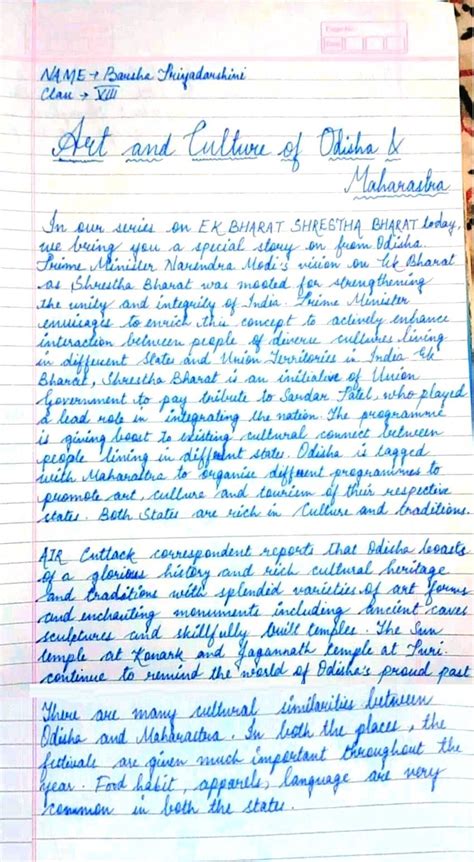 NAME → Barsha Priyadarshini
Class → VIII
Art and Culture of Odisha &
Maharastra
In our series on EK BHARAT SHRESTHA BHARAT today,
we bring you a special story on from Odisha.
Prime Minister Narendra Modi's vision on Ek Bharat
as Shrestha Bharat was mooted for strengthening
the unity and integrity of India. Prime Minister
envisages to enrich this concept to actively enhance
interaction between people of diverse cultures living
in different States and Union Territories in India Ek
Bharat, Shrestha Bharat is an initiative of Union
Government to pay tribute to Sardar Patel, who played
a lead role in integrating the nation. The programme
is giving boost to existing cultural connect between
people living in different states. Odisha is tagged
with Maharastra to organise different programmes to
promote art, culture and tourism of their respective
states. Both States are rich in Culture and traditions.
AIR Cuttack correspondent reports that Odisha boasts
of a glorious history and rich cultural heritage
and traditions with splendid varieties of art forms
and enchanting monuments including ancient caves
sculptures and skillfully built temples. The Sun
temple at Konark and Jagannath temple at Puri.
continue to remind the world of Odisha's proud past
There are many cultural similarities between
Odisha and Maharastra. In both the places, the
festivals are given much important throughout the
year. Food habit, apparels, language are very
common in both the states.